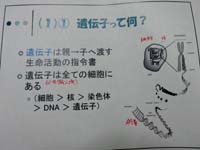 (1) 遺伝子って何?
遺伝子は親→子へ渡す
生命活動の指令書
遺伝子は全ての細胞に
ある
(細胞 > 核 > 染色体
> DNA > 遺伝子)